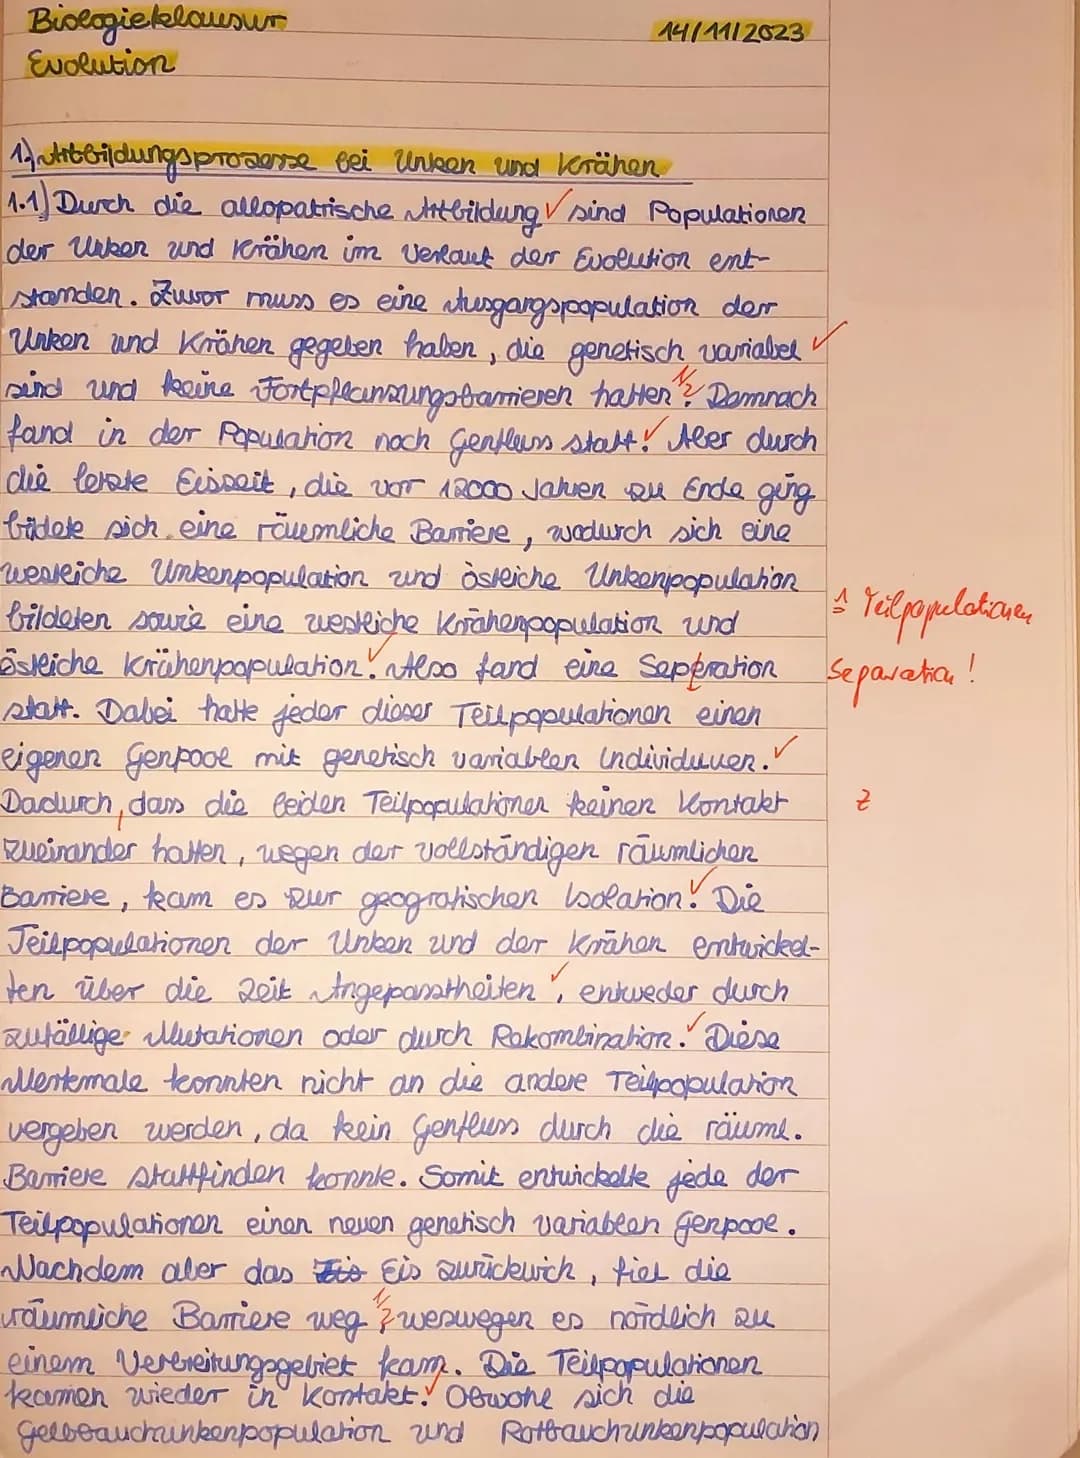 Biologieklausur 14/11/2023
Evolution
1.) Artbildungsprozesse bei Unken und Krähen
1.1) Durch die allopatrische Artbildung ✓ sind Populationen
der Unken und Krähen im Verlauf der Evolution ent-
standen. Zuvor muss es eine Ausgangspopulation der
Unken und Krähen gegeben haben, die genetisch variabel ✓
sind und keine Fortpflanzungsbarrieren hatten. Demnach
fand in der Population noch Genfluss statt. ✓ Aber durch
die letzte Eiszeit, die vor 12000 Jahren zu Ende ging
bildete sich eine räumliche Barriere, wodurch sich eine
westliche Unkenpopulation und östliche Unkenpopulation
bildeten sowie eine westliche Krähenpopulation und ≙ Teilpopulationen
östliche Krähenpopulation. ✓ Also fand eine Seperation Separation!
statt. Dabei hatte jeder dieser Teilpopulationen einen
eigenen Genpool mit genetisch variablen Individuuen. ✓
Dadurch, dass die beiden Teilpopulationen keinen Kontakt Z
zueinander hatten, wegen der vollständigen räumlichen
Barriere, kam es zur geografischen Isolation. ✓ Die
Teilpopulationen der Unken und der Krähen entwickel-
ten über die Zeit Angepasstheiten ✓, entweder durch
zufällige Mutationen oder durch Rekombination. ✓ Diese
Merkmale konnten nicht an die andere Teilpopulation
vergeben werden, da kein Genfluss durch die räuml.
Barriere stattfinden konnte. Somit entwickelte jede der
Teilpopulationen einen neuen genetisch variablen Genpool.
Nachdem aber das Eis Eis zurückwich, fiel die
räumliche Barriere weg, weswegen es nördlich zu
einem Verbreitungsgebiet kam. Die Teilpopulationen
kamen wieder in Kontakt. ✓ Obwohl sich die
Gelbbauchunkenpopulation und Rotbauchunkenpopulation